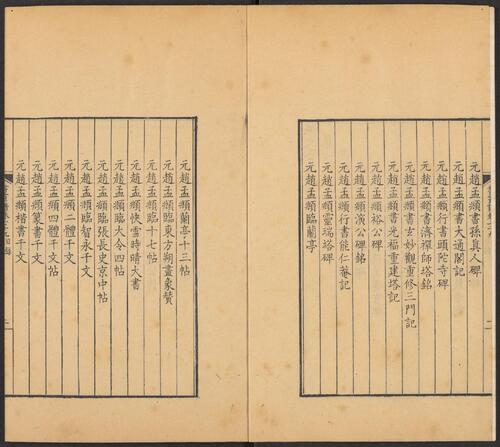 元趙孟頫書孫真人碑
元趙孟頫書大通閣記
元趙孟頫行書頭陀寺碑
元趙孟頫書濟禪師塔銘
元趙孟頫書玄妙觀重修三門記
元趙孟頫書光福重建塔記
元趙孟頫裕公碑
元趙孟頫演公碑銘
元趙孟頫行書能仁菴記
元趙孟頫靈瑞塔碑
元趙孟頫臨蘭亭
元趙孟頫蘭亭十三帖
元趙孟頫臨東方朔畫象贊
元趙孟頫臨十七帖
元趙孟頫快雪時晴大書
元趙孟頫臨大令四帖
元趙孟頫臨張長史京中帖
元趙孟頫臨智永千文
元趙孟頫二體千文
元趙孟頫四體千文帖
元趙孟頫篆書千文
元趙孟頫楷書千文